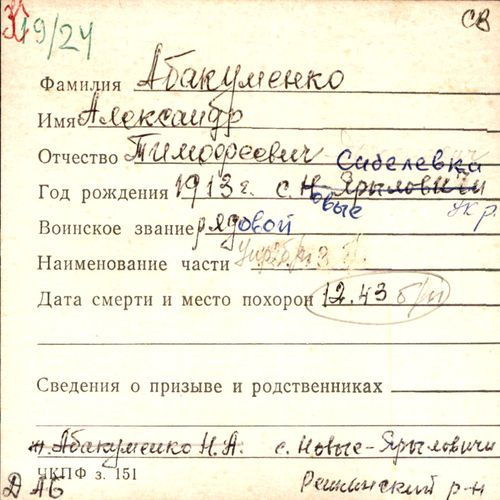 19/24
СВ
Фамилия Абакуменко
Имя Александр
Отчество Тимофеевич Сибелевка
Год рождения 1913 г. с. Н-Ярыловичи
овые укр
Воинское звание рядовой
Наименование части
Дата смерти и место похорон 12.43 б/м
Сведения о призыве и родственниках
Абакуменко Н.А. с. Новые-Ярыловичи
ЧКПФ з. 151
ДАБ р-н